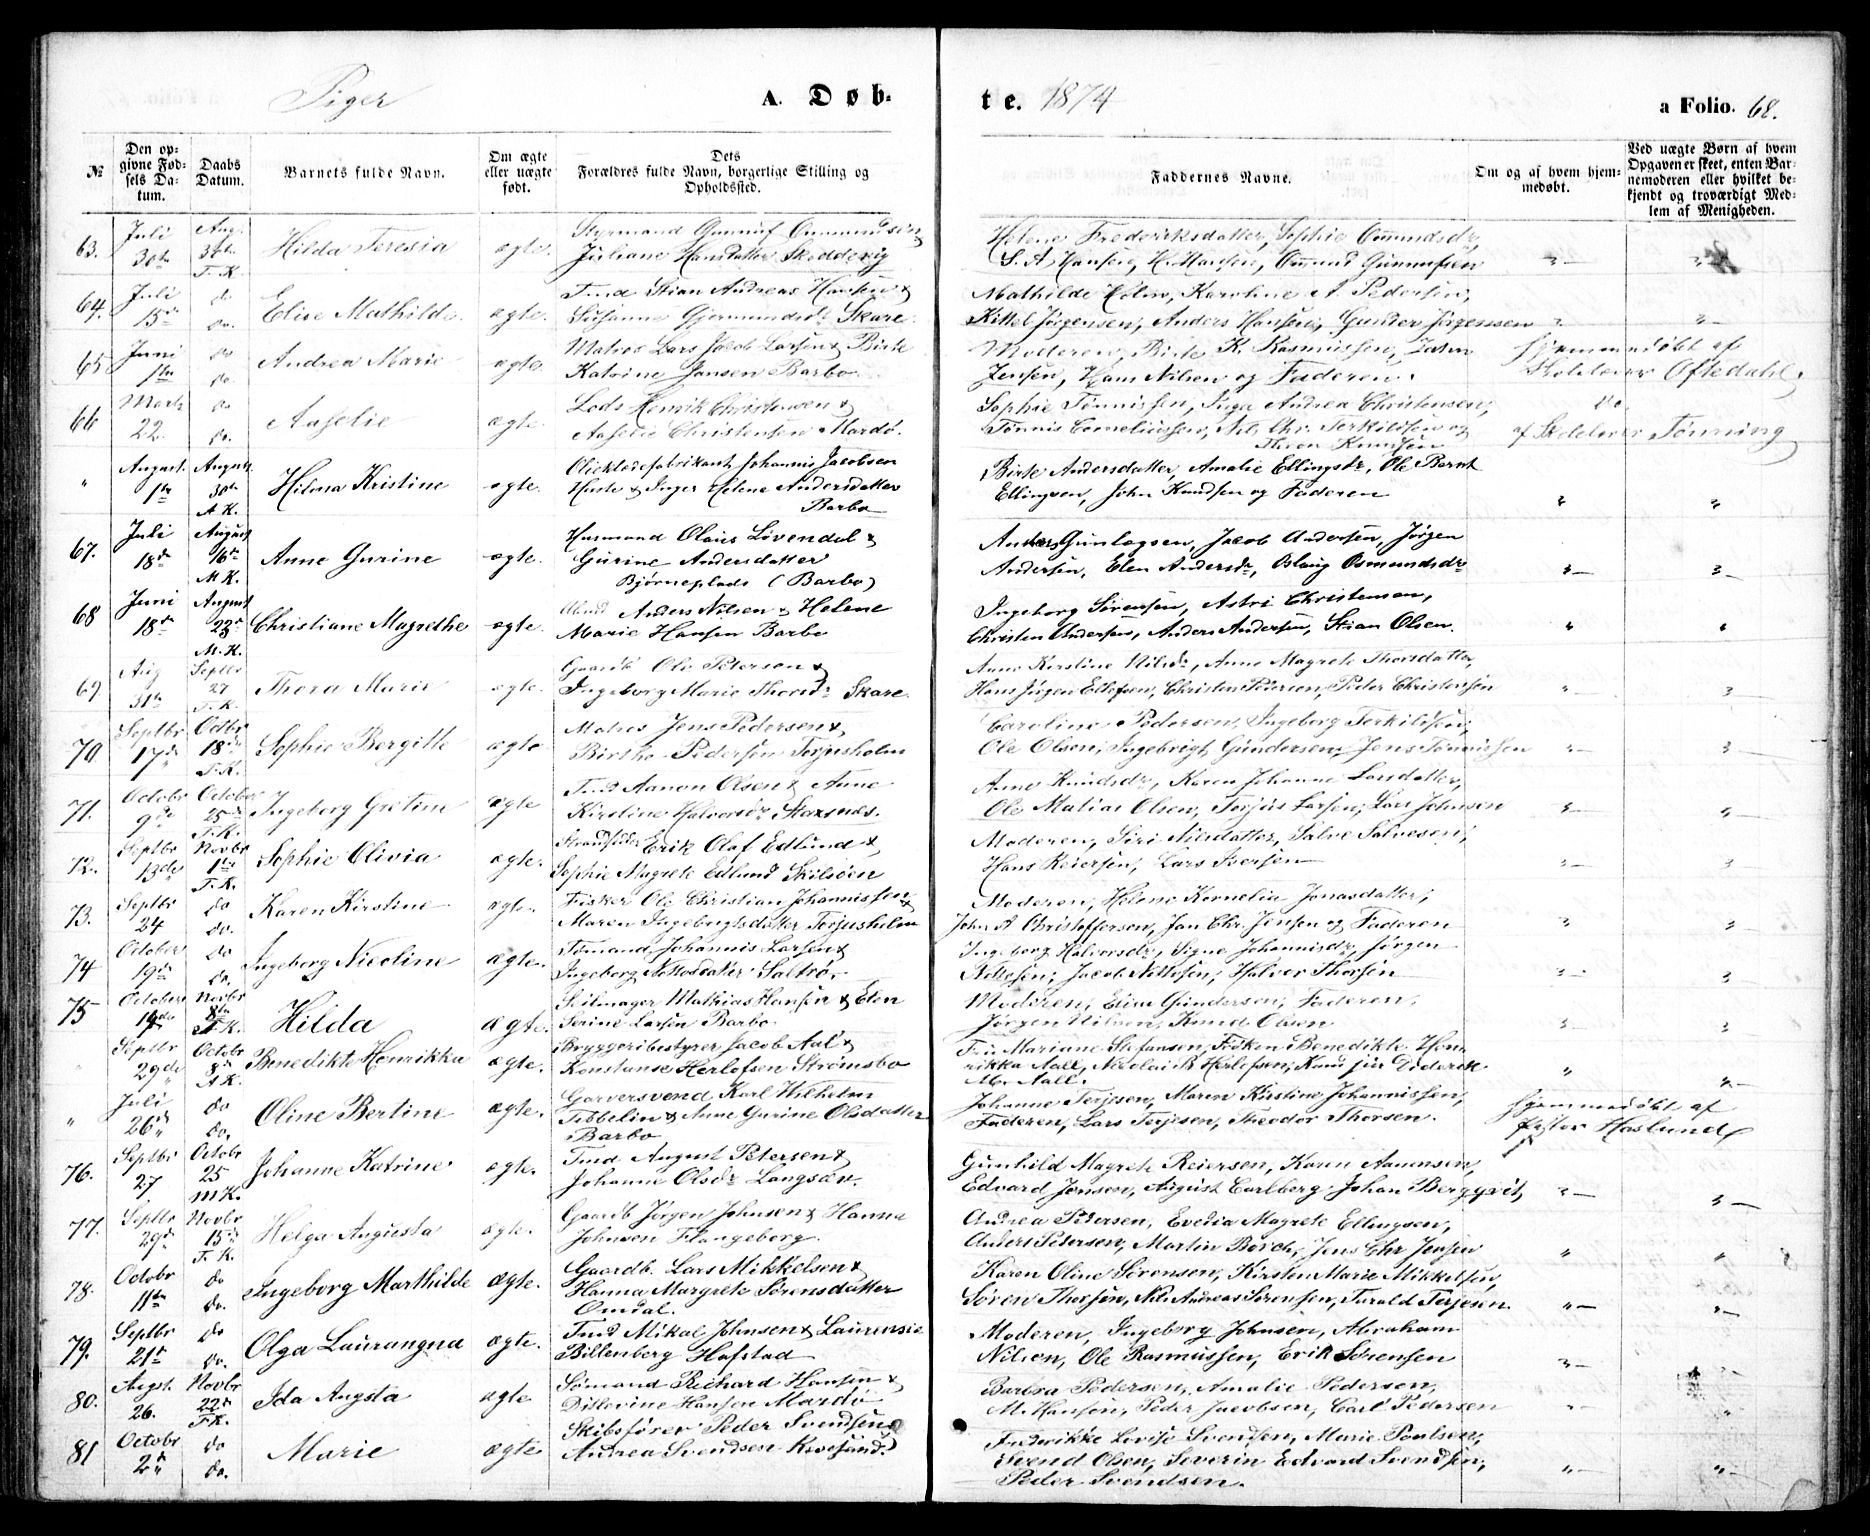 Piger
A. Døb-
te. 1874
a Folio. 68.
№
Den opgivne Fødsels Datum.
Daabs Datum.
Barnets fulde Navn.
Om ægte eller uægte født.
Dets Forældres fulde Navn, borgerlige Stilling og Opholdssted.
Faddernes Navne.
Om og af hvem hjemmedøbt.
Ved uægte Børn af hvem Opgaven er skeet, enten Barnemoderen eller hvilket bekjendt og troværdigt Medlem af Menigheden.
63. Juli 30te Aug. 30te F.K. Hilda Teresia ægte. Styrmand Gunnuf Ommundsen &
Juliane Hansdatter Skodderig
Helene Frederiksdatter, Sophie Omundsdr,
S. A. Hansen, H. Hansen, Omund Gunnufsen
64. Juli 15de do do. Elise Mathilde ægte. Tmd Stian Andreas Hansen &
Susanne Gjermundsdr Skare.
Mathilde Holm, Karoline A. Pedersen,
Kittel Jørgensen, Anders Hansen, Gunder Jørgensen
65 Juni 1ste do do. Andrea Marie ægte. Matros Lars Jacob Larsen & Birte
Katrine Jansen Barbo
Moderen, Birte K. Rasmussen,
Jensen, Hans Nilsen og Faderen.
Hjemmedøbt af
Skolelærer Oftedahl.
66 Marts 22. do do. Aaselie ægte. Lods Henrik Christensen &
Aaselie Christensen Mardø.
Sophie Tønnissen, Inga Andrea Christensen,
Tønnis Corneliussen, Nils Chr. Terkildsen og
Thron Knudsen
do.
af Skolelærer Tønning
" August. 1ste August 30te A K. Hilma Kristine ægte. Johannis Jacobsen
Huste & Inger Helene Andersdatter
Barbo
Birte Andersdatter, Amalie Ellingsdr, Ole Bernt
Ellingsen, John Knudsen og Faderen
67. Juli 18de August 16de M K. Anne Gurine ægte. Husmand Olaus Løvendal &
Gurine Andersdatter
Bjørneplads (Barbo)
Anders Gunlogsen, Jacob Andersen, Jørgen
Andersen, Elen Andersdr, Oslaug Osmundsdr
68 Juni 18de August 23de M.K. Christiane Magrethe ægte. Anders Nilsen & Helene
Marie Hansen Barbo
Ingeborg Sørensen, Astri Christensen,
Christen Andersen, Anders Andersen, Stian Olsen.
69 Aug 31te Septbr 27 F.K. Thora Marie ægte. Gaardb Ole Petersen &
Ingeborg Marie Thorsdr Skare
Anne Kirstine Nilsdr, Anne Magrete Thorsdatter,
Hans Jørgen Ellefsen, Christen Pedersen, Peder Christensen
70 Septbr 17de Octbr 18de F.K. Sophie Bergitte ægte Matros Jens Pedersen &
Birthe Pedersen Torjusholm
Caroline Pedersen, Ingeborg Terkildsen,
Ole Olsen, Ingebrigt Gundersen, Jens Tønnissen
71. Octobr 9de October 25de F.K. Ingeborg Gretine ægte Tmd Aanon Olsen & Anne
Kirstine Halvorsdr Staxnæs.
Anne Knudsdr, Karen Johanne Larsdatter,
Ole Matias Olsen, Terjus Larsen, Lars Johnsen
72. Septbr 13de Novbr 1ste F.K. Sophie Olivia ægte. Strandsider Erik Olaf Edlund &
Sophie Magrete Edlund Skilsøen
Moderen, Siri Nilsdatter, Salve Salvesen,
Hans Reiersen, Lars Iversen
73. Septbr 24 do do. Karen Kirstine ægte. Fisker Ole Christian Johannissen &
Maren Ingebrigtsdatter Torjusholm
Moderen, Helene Kornelia Jonasdatter,
John A Christoffersen, Jan Chr. Jensen og Faderen
74 October 19de do do. Ingeborg Nicoline ægte. Tømand Johannis Larsen &
Ingeborg Nottosdatter Saltrø.
Ingeborg Halvorsdr, Signe Johannisdr, Jørgen
Nottesen, Jacob Nottesen, Halvor Thorsen
75 October 19de Novbr 8de F.K. Hilda ægte. Seilmager Mathias Hansen & Elen
Serine Larsen Barbo
Moderen, Elise Gundersen, Faderen,
Jørgen Nilsen, Knud Olsen
" Septbr 29de Octobr 8de A K. Benedikte Henrikka ægte. Bryggeribestyrer Jacob Aal &
Konstanse Herlofsen Strømsbo
Fru Mariane Stefansen, Frøken Benedikte Hen-
rikka Aall, Nicolai B Herlofsen, Knud jun Diderik
M. Aall.
" Juli 26de do do. Oline Bertine ægte. Garversvend Karl Wilhelm
Tobbelin & Anne Gurine Olsdatter
Barbo
Johanne Terjesen, Maren Kirstine Johannissen,
Faderen, Lars Terjesen, Theodor Thorsen.
Hjemmedøbt af
Pastor Haslund
76. Septbr 27 Octobr 25 M K. Johanne Katrine ægte. Tmd August Petersen &
Johanne Olsdr Langsæv.
Gunhild Magrete Reiersen, Karen Aanensen,
Edvard Jensen, August Carlberg, Johan Bergqvist
77. Septbr 29de Novbr 15de F.K. Helga Augusta ægte. Gaardb Jørgen Johnsen & Hanna
Johnsen Flangeborg.
Andrea Pedersen, Evedia Magrete Ellingsen,
Anders Petersen, Martin Borch, Jens Chr Jensen
78. Octobr 11te do do. Ingeborg Marthilde ægte. Gaardb. Lars Mikkelsen &
Hanna Margrete Sørensdatter
Omdal.
Karen Oline Sørensen, Kirsten Marie Mikkelsen,
Søren Thorsen, Nils Andreas Sørensen, Tarald Terjesen
79. Septbr 21de do do. Olga Laurangna ægte. Tmd Mikal Johnsen & Laurensie
Billenberg Hafstad
Moderen, Ingeborg Johnsen, Abraham
Nilsen, Ole Rasmussen, Erik Sørensen
80. Augst. 26. Novbr 22de F.K. Ida Augsta ægte Sømand Richard Hansen &
Ditlevine Hansen Mardø
Barbra Pedersen, Amalie Pedersen,
M. Hansen, Peder Jacobsen, Carl Pedersen
81 Octobr 2de do do. Marie ægte. Skibsfører Peder Svendsen &
Andrea Svendsen Revesand.
Fredrikke Lovise Svendsen, Marie Poulsen,
Svend Olsen, Severin Edvard Svendsen,
Peder Svendsen.